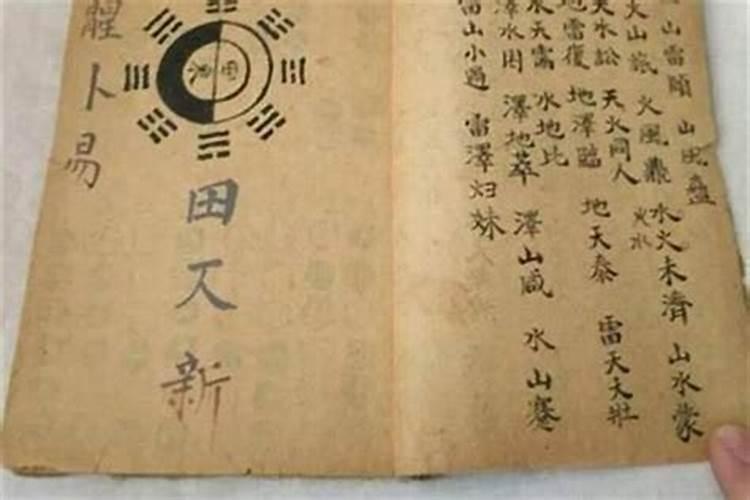 山雷頤 山風蠱 水火未濟 山水蒙
火水
火山旅 火風鼎
天水訟 天火同人 地天泰 雷天天壯
地雷復 地澤臨
水天需 水地比
澤水困 澤地萃 澤山咸 水山蹇
雷山小過 雷澤归妹
田 新
卜易